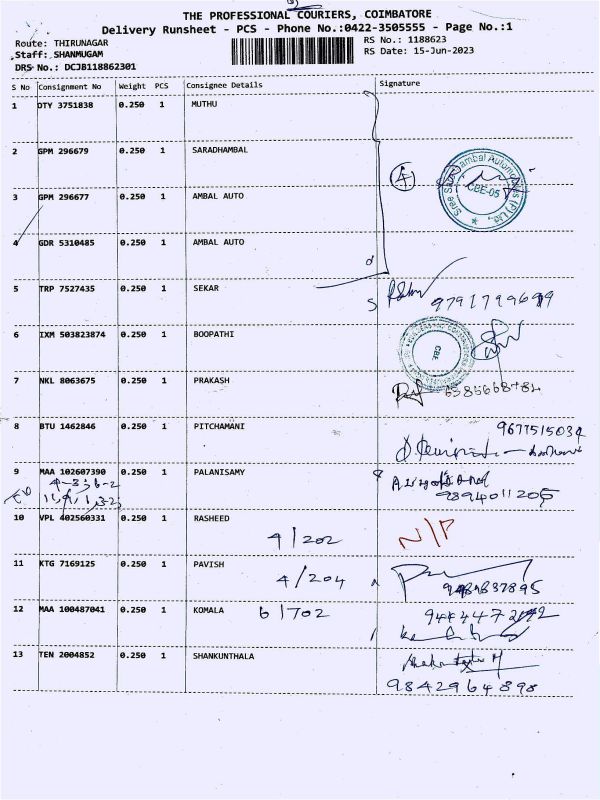 THE PROFESSIONAL COURIERS, COIMBATORE
Delivery Runsheet - PCS - Phone No.:0422-3505555 - Page No.:1
Route: THIRUNAGAR RS No.: 1188623
Staff: SHANMUGAM RS Date: 15-Jun-2023
DRS No.: DCJB118862301
S No Consignment No Weight PCS Consignee Details Signature
1 DTY 3751838 0.250 1 MUTHU
2 GPM 296679 0.250 1 SARADHAMBAL
3 GPM 296677 0.250 1 AMBAL AUTO
4 GDR 5310485 0.250 1 AMBAL AUTO
4
CBE-05
5 TRP 7527435 0.250 1 SEKAR
6 IXM 503823874 0.250 1 BOOPATHI
CBE
7 NKL 8063675 0.250 1 PRAKASH
8 BTU 1462846 0.250 1 PITCHAMANI 9677515034
9 MAA 102607390 0.250 1 PALANISAMY
9894011205
10 VPL 402560331 0.250 1 RASHEED 4/202 N/P
11 KTG 7169125 0.250 1 PAVISH 4/204
12 MAA 100487041 0.250 1 KOMALA 6/702
13 TEN 2004852 0.250 1 SHANKUNTHALA
9842964898